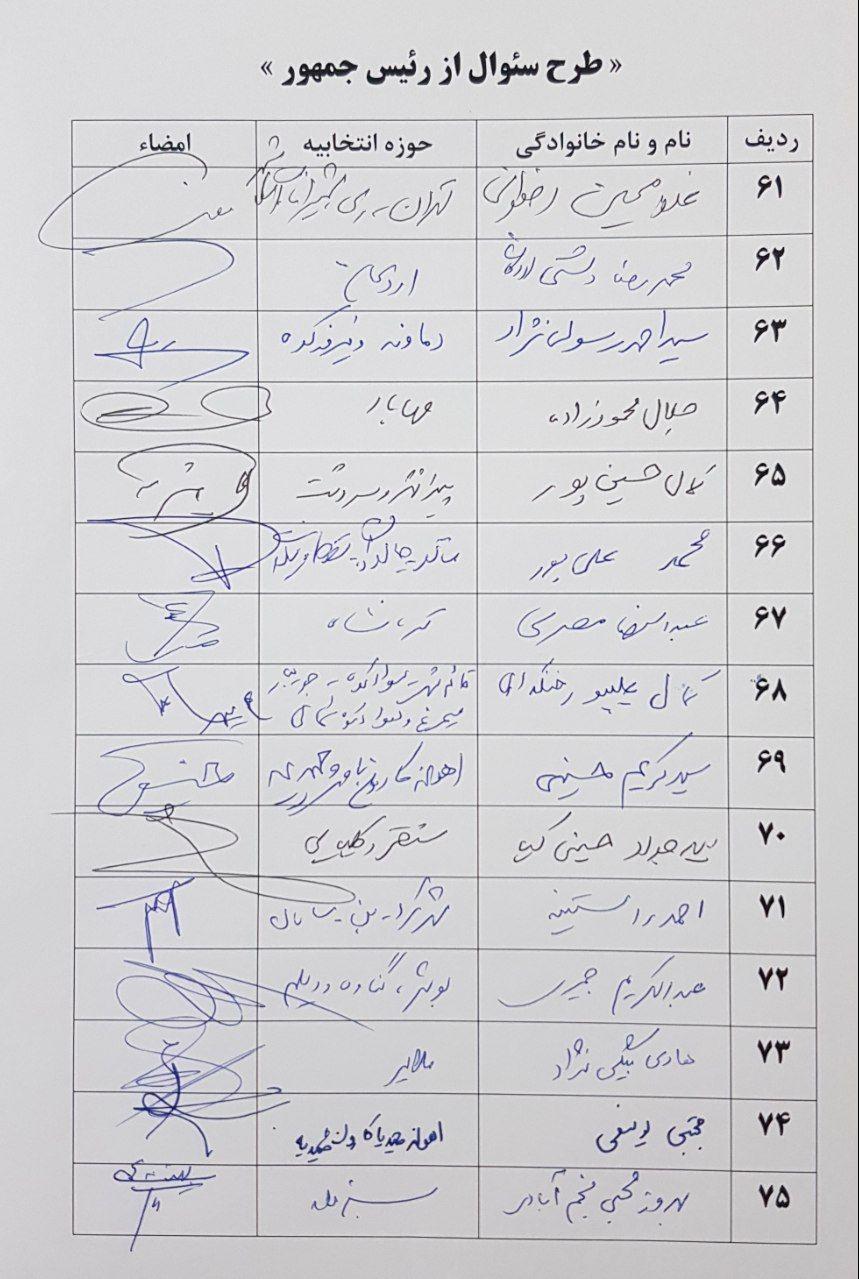 « طرح سئوال از رئیس جمهور »
ردیف نام و نام خانوادگی حوزه انتخابیه امضاء
۶۱ غلامحسین رضوانی تهران - ری
۶۲ محمدرضا دشتی اردکان
۶۳ سید احمد رسولی نژاد دماوند و فیروزکوه
۶۴ جلال محمودزاده مهاباد
۶۵ کمال حسین پور پیرانشهر و سردشت
۶۶ محمد علی پور ماکو چالدران
۶۷ عبدالرضا مصری کرمانشاه
۶۸ کمال علیپور خنکداری قائم شهر - سوادکوه - جویبار
سیمرغ و سوادکوه شمالی
۶۹ سید کریم حسینی اهواز کارون باوی و حمیدیه
۷۰ سید جواد حسینی کیا سنقر و کلیایی
۷۱ احمد راستینه شهرکرد - بن - سامان
۷۲ عبدالکریم جمیری بوشهر، گناوه و دیلم
۷۳ هادی بیگی نژاد ملایر
۷۴ مجتبی یوسفی اهواز باوی کارون حمیدیه
۷۵ بهروز محبی نجم آبادی سبزوار